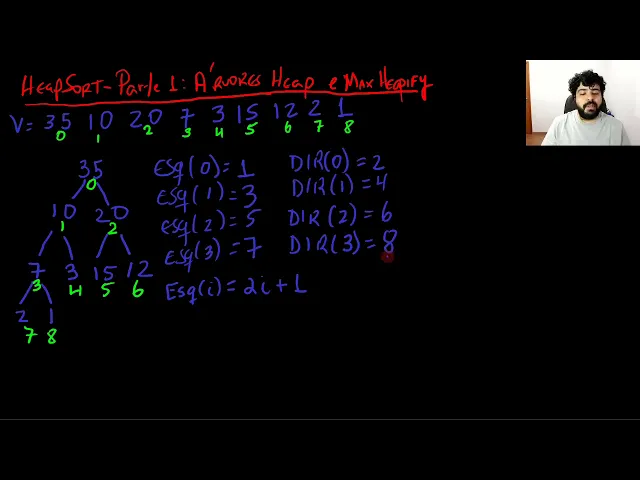 HeapSort - Parte 1: Árvores Heap e Max Heapify
V = 35 10 20 7 3 15 12 2 1
0 1 2 3 4 5 6 7 8
35
0
10 20
1 2
7 3 15 12
3 4 5 6
2 1
7 8
Esq(0) = 1 DIR(0) = 2
Esq(1) = 3 DIR(1) = 4
Esq(2) = 5 DIR(2) = 6
Esq(3) = 7 DIR(3) = 8
Esq(i) = 2i + 1